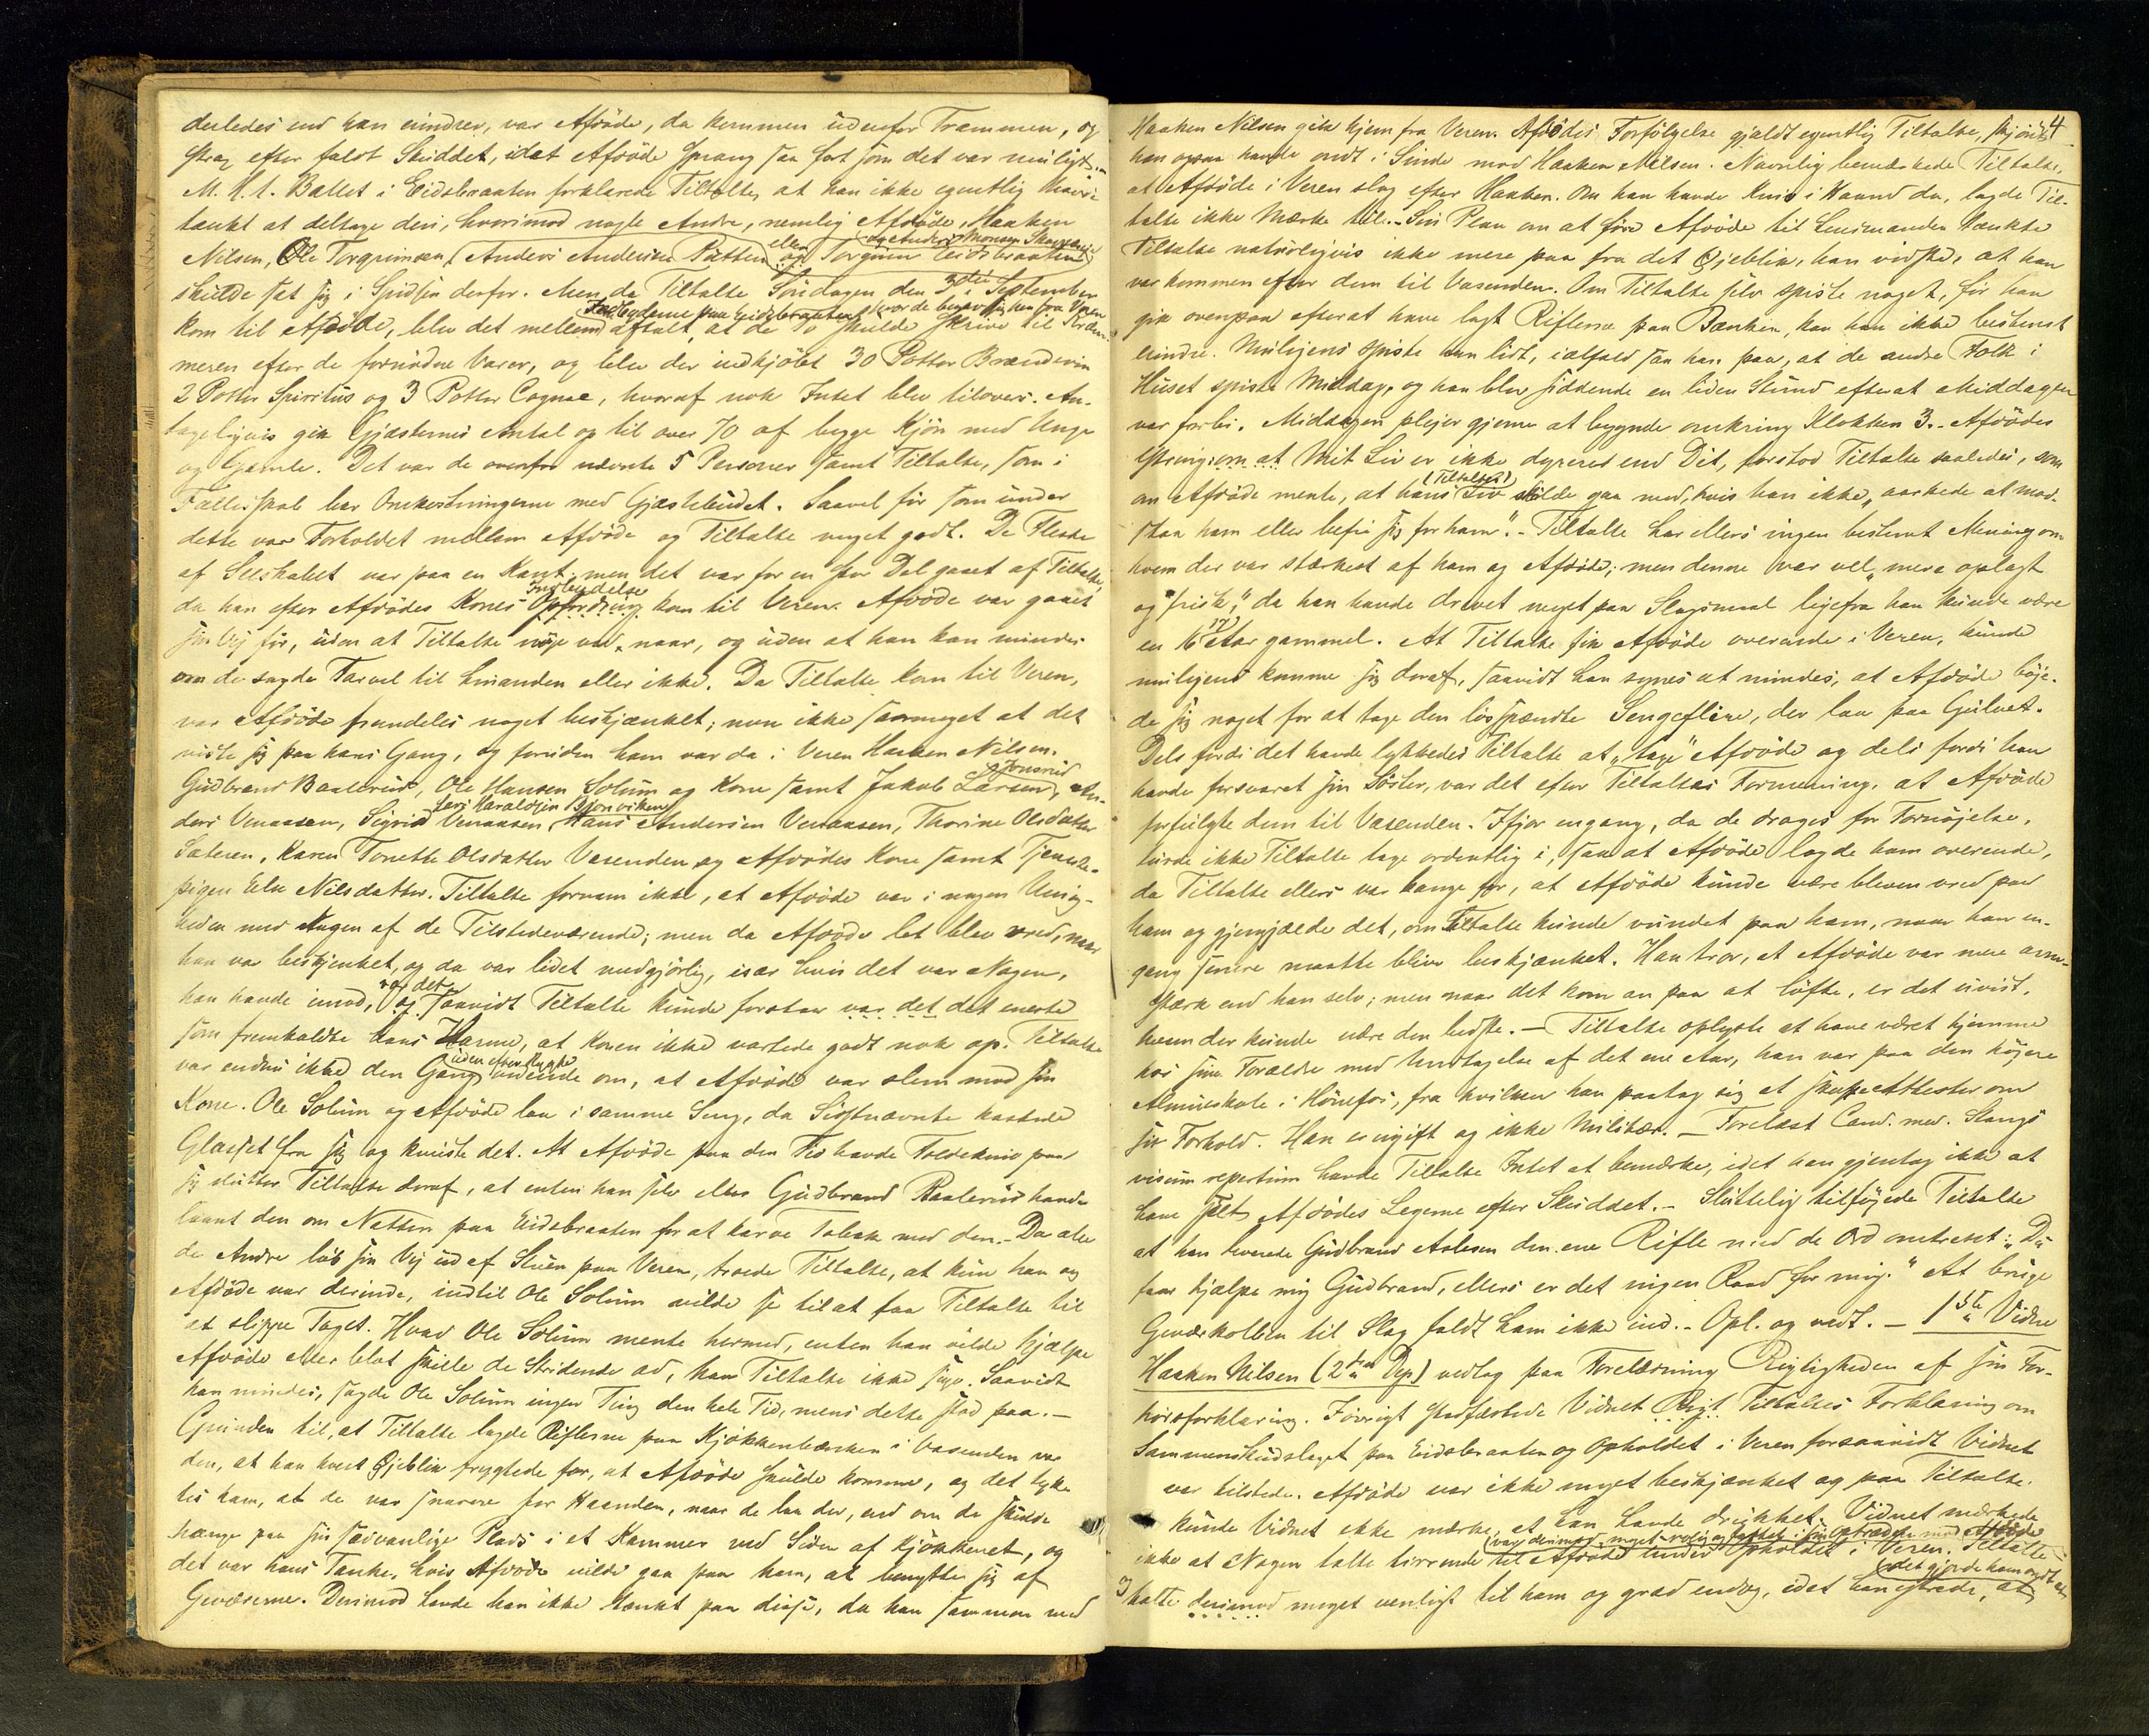 derledes end han erindrer, var Afdøde, da kommen udenfor Trammen, og
strax efter faldt Skuddet, idet Afdøde sprang saa fort som det var muligt. -
M. H. t. Ballet i Eidsbraaten forklarede Tiltalte, at han ikke egentlig havde
tænkt at deltage deri, hvorimod nogle Andre, nemlig Afdøde, Haaken
Nilsen, Ole Torgrimsen, Anders Andersen Pütten og Torgrim Eidsbraaten
skulde sat sig i Spidsen derfor. Men da Tiltalte Søndagen den 3die September
kom til Afdøde, blev det mellem Indbyderne paa Eidsbraaten aftalt, at de To skulde skrive til Kræm-
meren efter de fornødne Varer, og blev der indkjøbt 30 Potter Brændevin
2 Potter Spiritus og 3 Potter Cognac, hvoraf nok Intet blev tilovers. An-
tageligvis gik Gjæsternes Antal op til over 70 af begge Kjøn med Unge
og Gamle. Det var de ovenfor nævnte 5 Personer samt Tiltalte, som i
Fællesskab bar Omkostningerne med Gjæstebudet. Saavel før som under
dette var Forholdet mellem Afdøde og Tiltalte meget godt. De Fleste
af Selskabet var paa en Kant; men det var for en stor Del gaaet af Tiltalte,
da han efter Afdødes Kones Opfordring Indbydelse kom til Veren. Afdøde var gaaet
sin Vej før, uden at Tiltalte nøje ved, naar, og uden at han kan mindes
om de sagde Farvel til hinanden eller ikke. Da Tiltalte kom til Veren,
var Afdøde fremdeles noget beskjænket; men ikke saameget at det
viste sig paa hans Gang, og foruden ham var da i Veren Haaken Nilsen,
Gudbrand Baalerud, Ole Hansen Solum og Kone samt Jakob Larsen Jonsrud, An-
ders Venaasen, Sigrid Venaasen, Lars Haraldsen Bjørnviken, Hans Andersen Venaasen, Thorine Olsdatter
Sæteren, Karen Tonette Olsdatter Vasenden og Afdødes Kone samt Tjeneste-
pigen Eli Nilsdatter. Tiltalte fornam ikke, at Afdøde var i nogen Uenig-
heden med Nogen af de Tilstedeværende; men da Afdøde let blev vred, naar
han var beskjænket, og da var lidet medgjørlig, især hvis det var Nogen,
han havde imod, og saavidt Tiltalte kunde forstaa var det det eneste
som fremkaldte hans Harme, at Konen ikke vartede godt nok op. Tiltalte
var endnu ikke den Gang uden efter Rygte vidende om, at Afdøde var slem mod sin
Kone. Ole Solum og Afdøde laa i samme Seng, da Sidstnævnte kastede
Glasset fra sig og knuste det. At Afdøde paa den Tid havde Foldekniv paa
sig slutter Tiltalte deraf, at enten han selv eller Gudbrand Baalerud havde
laant den om Natten paa Eidsbraaten for at karve Tobak med den. - Da alle
de Andre løb sin Vej ud af Stuen paa Veren, troede Tiltalte, at kun han og
Afdøde var derinde, indtil Ole Solum vilde se til at faa Tiltalte til
at slippe Taget. Hvad Ole Solum mente hermed, enten han vilde hjælpe
Afdøde eller blot skille de Stridende ad, kan Tiltalte ikke sige. Saavidt
han mindes, sagde Ole Solum ingen Ting den hele Tid, mens dette stod paa. -
Grunden til, at Tiltalte lagde Riflerne paa Kjøkkenbænken i Vasenden var
den, at han hvert Øjeblik frygtede for, at Afdøde skulde komme, og det tyk-
tes ham, at de var snarere for Haanden, naar de laa der, end om de skulde
hænge paa sin sædvanlige Plads i et Kammer ved Siden af Kjøkkenet, og
det var hans Tanke, hvis Afdøde vilde gaa paa ham, at benytte sig af
Geværerne. Derimod havde han ikke tænkt paa disse, da han sammen med
4
Haaken Nilsen gik hjem fra Veren. Afdødes Forfølgelse gjaldt egentlig Tiltalte, skjønt
han ogsaa havde ondt i Sinde mod Haaken Nilsen. Navnlig bemærkede Tiltalte,
at Afdøde i Veren slog efter Haaken. Om han havde Kniv i Haand da, lagde Til-
talte ikke Mærke til. - Sin Plan om at føre Afdøde til Lensmanden tænkte
Tiltalte naturligvis ikke mere paa fra det Øjeblik, han vidste, at han
var kommen efter dem til Vasenden. Om Tiltalte selv spiste noget, før han
gik ovenpaa efterat have lagt Riflerne paa Bænken, kan han ikke bestemt
erindre. Muligens spiste han lidt, ialfald saa han paa, at de andre Folk i
Huset spiste Middag, og han blev siddende en liden Stund efterat Middagen
var forbi. Middagen plejer gjerne at begynde omkring Klokken 3. - Afdødes
Ytring om at Mit Liv er ikke dyrere end Dit, forstod Tiltalte saaledes, som
om Afdøde mente, at hans (Tiltaltes) Liv skulde gaa med, hvis han ikke "aarkede at mod-
staa ham eller befri sig for ham". - Tiltalte har ellers ingen bestemt Mening om
hvem der var stærkest af ham og Afdøde; men denne var vel "mere oplagt
og frisk", da han havde drevet meget paa Slagsmaal ligefra han kunde være
en 16 (17) Aar gammel. At Tiltalte fik Afdøde overende i Veren, kunde
muligens komme sig deraf, saavidt han synes at mindes, at Afdøde bøje-
de sig noget for at tage den løssprændte Sengefløre, der laa paa Gulvet.
Dels fordi det havde lykkedes Tiltalte at "tage" Afdøde og dels fordi han
havde forsvaret sin Søster, var det efter Tiltaltes Formening, at Afdøde
forfulgte dem til Vasenden. Ifjor engang, da de droges for Fornøjelse,
turde ikke Tiltalte tage ordentlig i, saa at Afdøde lagde ham overende,
da Tiltalte ellers var bange for, at Afdøde kunde være bleven vred paa
ham og gjengjælde det, om Tiltalte kunde vundet paa ham, naar han en-
gang senere maatte blive beskjænket. Han tror, at Afdøde var mere arm-
stærk end han selv; men naar det kom an paa at løfte, er det uvist,
hvem der kunde være den bedste. - Tiltalte oplyste at have været hjemme
hos sine Forældre med Undtagelse af det ene Aar, han var paa den højere
Almueskole i Hønefos, fra hvilken han paatog sig at skaffe Attester om
sit Forhold. Han er ugift og ikke Militær. - Forelæst Cand. med. Stangs
visum repertum havde Tiltalte Intet at bemærke, idet han gjentog ikke at
have seet Afdødes Legeme efter Skuddet. - Sluttelig tilføjede Tiltalte
at han leverede Gudbrand Aslesen den ene Rifle med de Ord omtrent: "Du
faar hjælpe mig Gudbrand, ellers er det ingen Raad for mig." At bruge
Geværkolben til Slag faldt ham ikke ind. - Opl. og vedt. - 1ste Vidne
Haaken Nilsen (2den Dep) vedtog paa Forelæsning Rigtigheden af sin For-
hørsforklaring. Iøvrigt stadfæstede Vidnet Rigt Tiltaltes Forklaring om
Sammenskudslaget paa Eidsbraaten og Opholdet i Veren forsaavidt Vidnet
var tilstede. Afdøde var ikke meget beskjænket og paa Tiltalte
kunde Vidnet ikke mærke, at han havde drukket. Vidnet mærkede
ikke at Nogen talte tirrende til Afdøde under Opholdet i Veren. Tiltalte
(var derimod meget rolig og sagtelig i sin Optræden mod Afdøde
talte derimod meget venligt til ham og græd endog, idet han ytrede, at